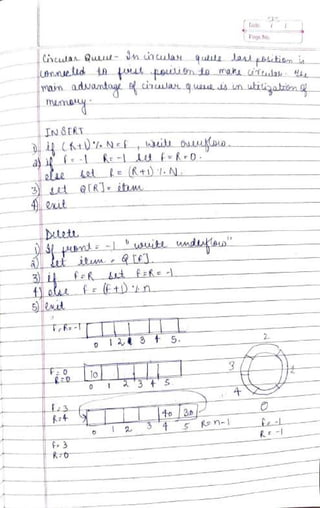 Date / /
Page No.
Circular Queue - In circular queue last position is
connected to first position to make circular. The
main advantage of circular queue is in utilization of
memory.
INSERT
1) if (R+1)%N=F, write overflow.
2) if F=-1 R=-1 set F=R=0.
else set R=(R+1)%N.
3) set Q[R]=item
4) exit
Delete
1) If front=-1 "write underflow"
2) Set item=Q[F].
3) if F=R set F=R=-1
4) else F=(F+1)%n
5) exit
F,R=-1
0 1 2 3 4 5.
F=0 10
R=0 0 1 2 3 4 5
F=3 40 30
R=4 0 1 2 3 4 5 R=n-1
F=3
R=0
2
3
4
0
F=-1
R=-1